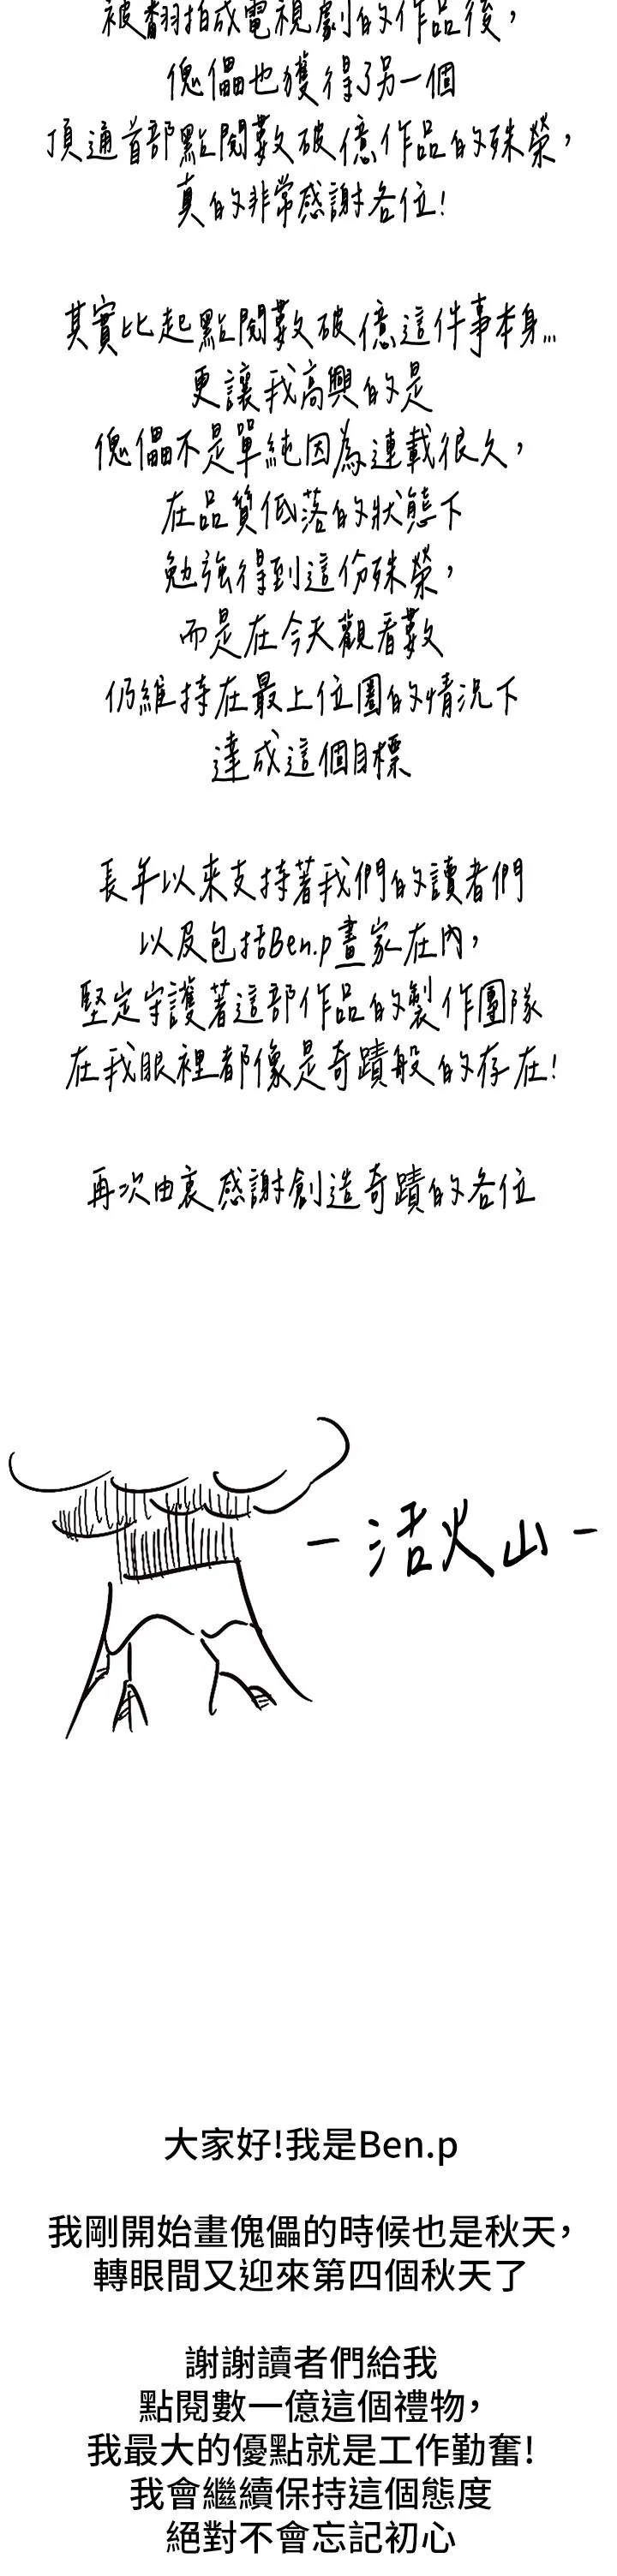 被翻拍成電視劇的作品後，
傀儡也獲得了另一個
頂通首部點閱數破億作品的殊榮，
真的非常感謝各位！
其實比起點閱數破億這件事本身…
更讓我高興的是
傀儡不是單純因為連載很久，
在品質低落的狀態下
勉強得到這份殊榮，
而是在今天觀看數
仍維持在最上位圈的情況下
達成這個目標
長年以來支持著我們的讀者們
以及包括Ben.p畫家在內，
堅定守護著這部作品的製作團隊
在我眼裡都像是奇蹟般的存在！
再次由衷感謝創造奇蹟的各位
-活火山-
大家好!我是Ben.p
我剛開始畫傀儡的時候也是秋天，
轉眼間又迎來第四個秋天了
謝謝讀者們給我
點閱數一億這個禮物，
我最大的優點就是工作勤奮!
我會繼續保持這個態度
絕對不會忘記初心